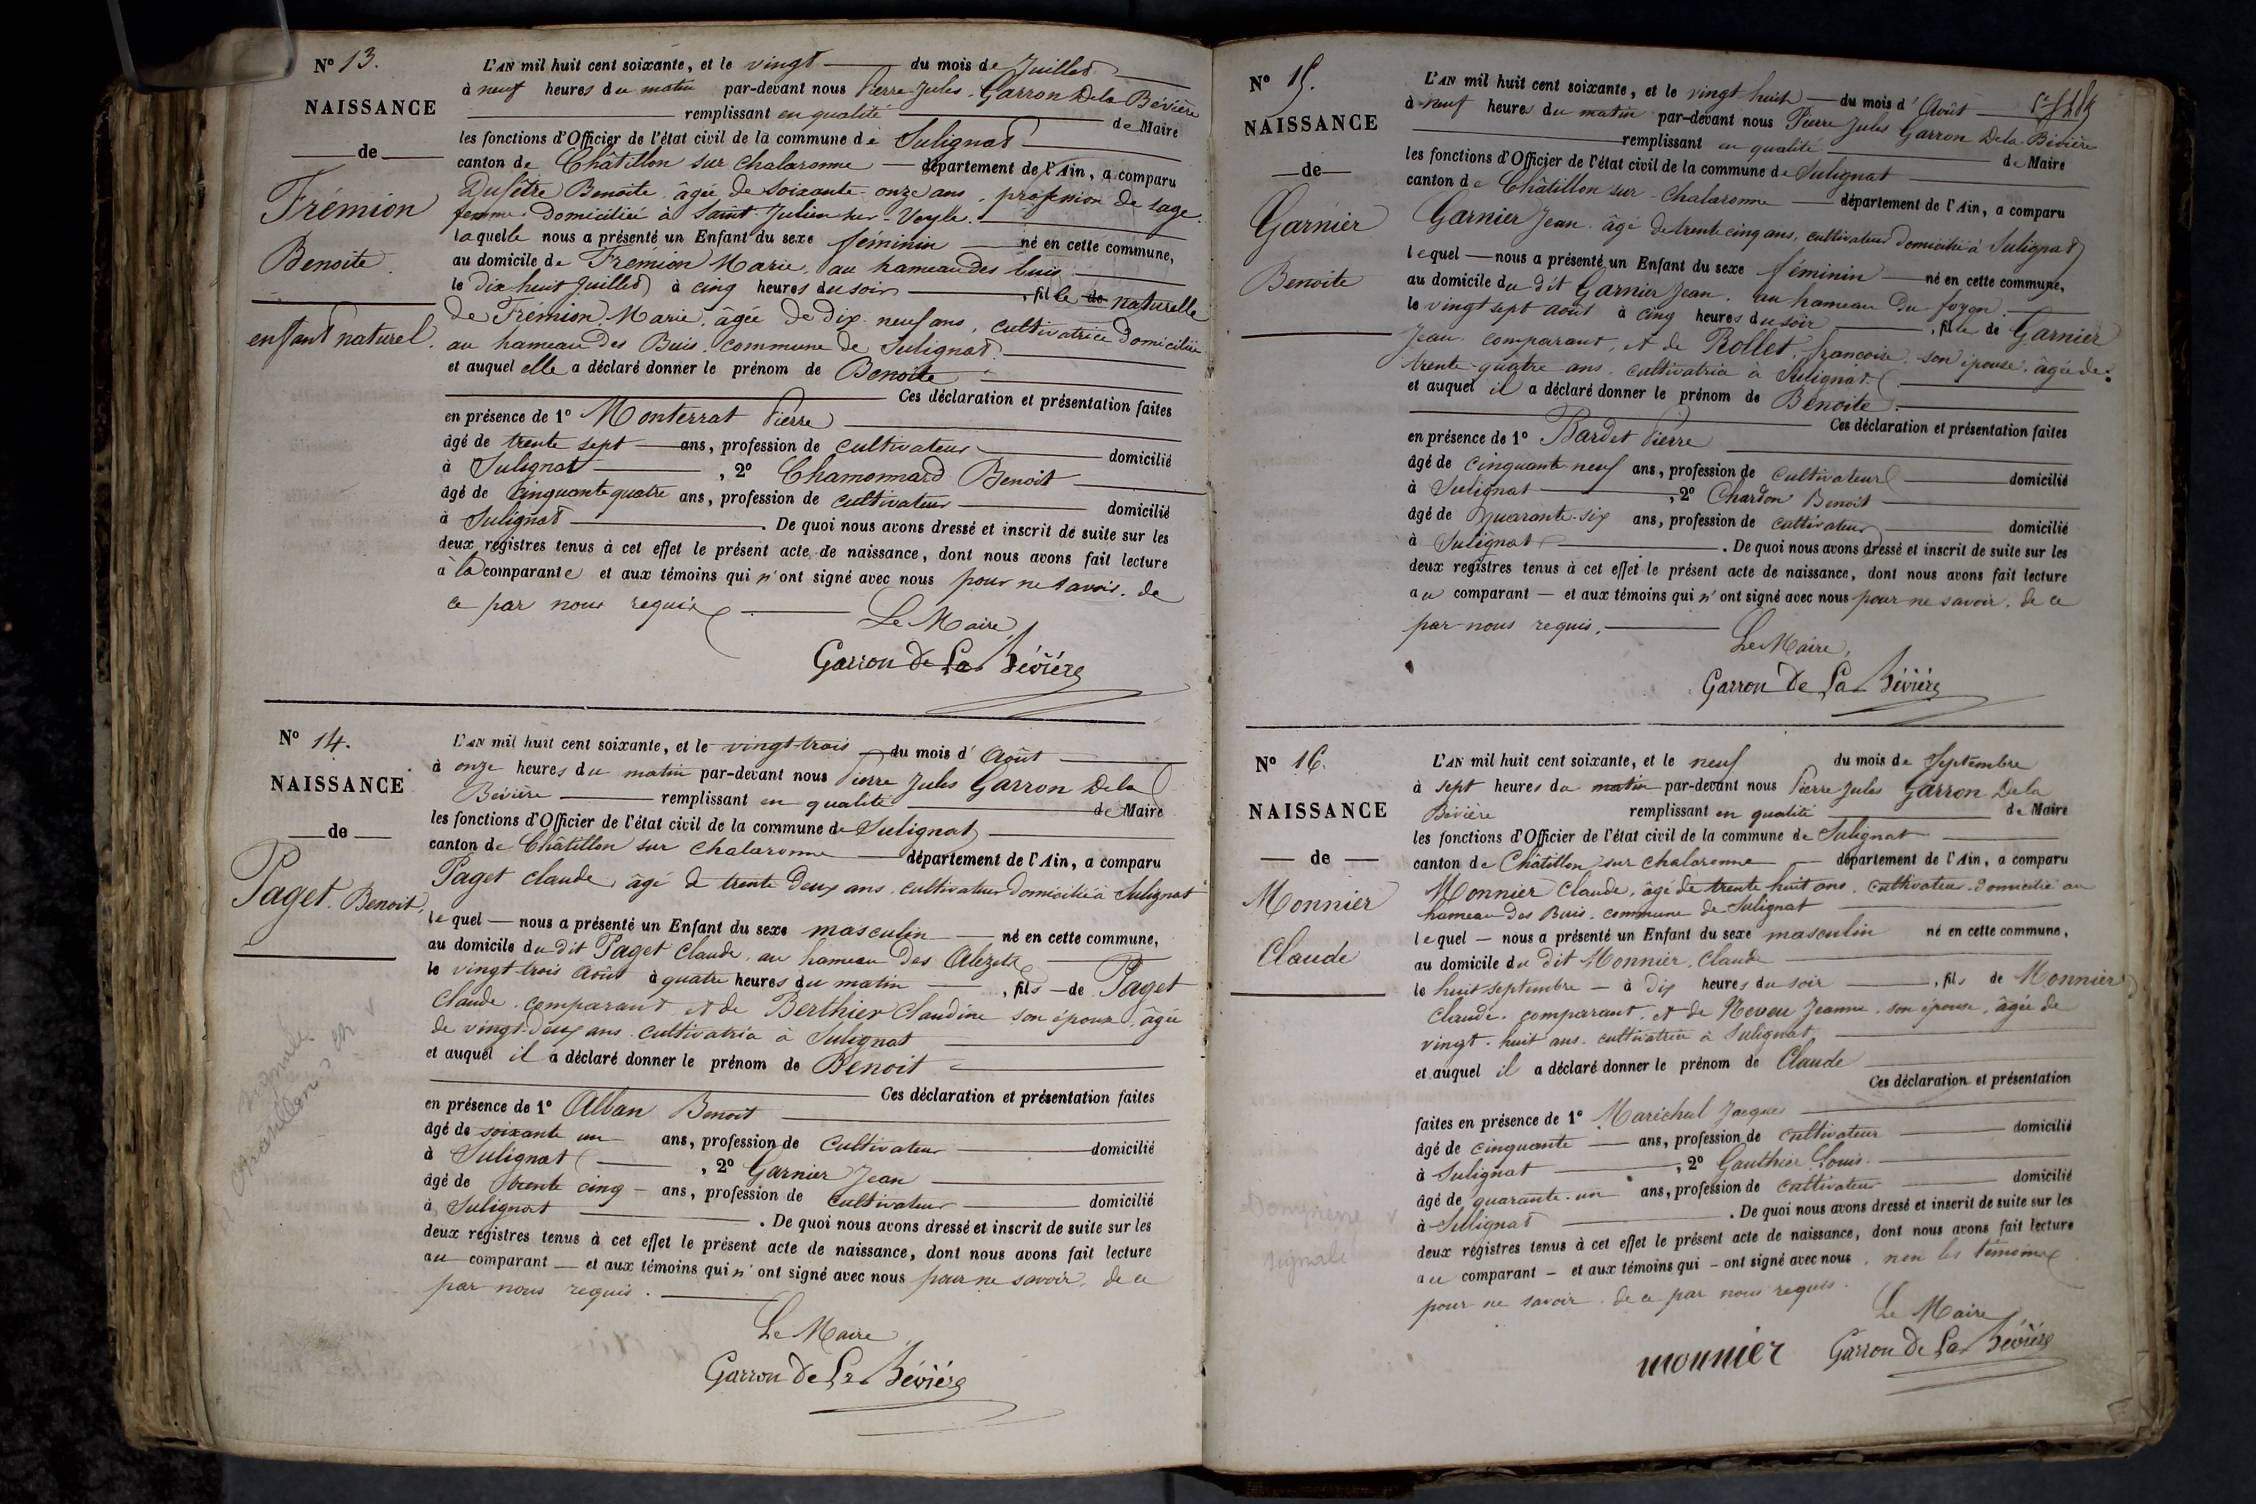 Nº 13.
NAISSANCE
de
Frémion
Benoite.
enfant naturel.
L'AN mil huit cent soixante, et le vingt du mois de Juillet
à neuf heures du matin par-devant nous Pierre Jules Garron De la Bévière
remplissant en qualité de Maire
les fonctions d'Officier de l'état civil de la commune de Sulignat
canton de Châtillon sur Chalaronne département de l'Ain, a comparu
Benoite âgée de soixante onze ans, profession de sage
femme Domiciliée à Saint Julien sur Veyle.
laquelle nous a présenté un Enfant du sexe féminin né en cette commune,
au domicile de Frémion Marie, au hameau des buis
le dix huit Juillet à cinq heures du soir, fille de naturelle
de Frémion Marie, âgée de dix neuf ans, cultivatrice domiciliée
au hameau des Buis, commune de Sulignat.
et auquel elle a déclaré donner le prénom de Benoite
Ces déclaration et présentation faites
en présence de 1º Monterrat Pierre
âgé de trente sept ans, profession de cultivateur domicilié
à Sulignat, 2º Chamonnard Benoit
âgé de cinquante quatre ans, profession de cultivateur domicilié
à Sulignat. De quoi nous avons dressé et inscrit de suite sur les
deux registres tenus à cet effet le présent acte de naissance, dont nous avons fait lecture
à la comparante et aux témoins qui n'ont signé avec nous pour ne savoir. de
ce par nous requis
Le Maire,
Garron De La Bévière
Nº 14.
NAISSANCE
de
Paget Benoit,
L'AN mil huit cent soixante, et le vingt-trois du mois d'Août
à onze heures du matin par-devant nous Pierre Jules Garron De la
Bévière remplissant en qualité de Maire
les fonctions d'Officier de l'état civil de la commune de Sulignat
canton de Châtillon sur Chalaronne département de l'Ain, a comparu
Paget Claude, âgé de trente deux ans, cultivateur domicilié à Sulignat
lequel nous a présenté un Enfant du sexe masculin né en cette commune,
au domicile du dit Paget Claude, au hameau des
le vingt-trois Août à quatre heures du matin, fils de Paget
Claude comparant et de Berthier Claudine son épouse, âgée
de vingt-deux ans cultivatrice à Sulignat
et auquel il a déclaré donner le prénom de Benoit
Ces déclaration et présentation faites
en présence de 1º Alban Benoit
âgé de soixante un ans, profession de cultivateur domicilié
à Sulignat, 2º Garnier Jean
âgé de trente cinq ans, profession de cultivateur domicilié
à Sulignat. De quoi nous avons dressé et inscrit de suite sur les
deux registres tenus à cet effet le présent acte de naissance, dont nous avons fait lecture
au comparant et aux témoins qui n'ont signé avec nous pour ne savoir, de ce
par nous requis.
Le Maire
Garron De La Bévière
Nº 15.
NAISSANCE
de
Garnier
Benoite
L'AN mil huit cent soixante, et le vingt huit du mois d'Août
à neuf heures du matin par-devant nous Pierre Jules Garron De la Bévière
remplissant en qualité de Maire
les fonctions d'Officier de l'état civil de la commune de Sulignat
canton de Châtillon sur Chalaronne département de l'Ain, a comparu
Garnier Jean âgé de trente cinq ans, cultivateur domicilié à Sulignat
lequel nous a présenté un Enfant du sexe féminin né en cette commune,
au domicile du dit Garnier Jean, au hameau du foyon.
le vingt sept août à cinq heures du soir, fille de Garnier
Jean comparant, et de Rollet françoise son épouse, âgée de
trente-quatre ans, cultivatrice à Sulignat
et auquel il a déclaré donner le prénom de Benoite.
Ces déclaration et présentation faites
en présence de 1º Bardet Pierre
âgé de cinquante-neuf ans, profession de cultivateur domicilié
à Sulignat, 2º Chardon Benoit
âgé de quarante-six ans, profession de cultivateur domicilié
à Sulignat. De quoi nous avons dressé et inscrit de suite sur les
deux registres tenus à cet effet le présent acte de naissance, dont nous avons fait lecture
au comparant et aux témoins qui n'ont signé avec nous pour ne savoir, de ce
par nous requis.
Le Maire,
Garron De La Bévière
Nº 16.
NAISSANCE
de
Monnier
Claude
L'AN mil huit cent soixante, et le neuf du mois de Septembre
à sept heures du matin par-devant nous Pierre Jules Garron De la
Bévière remplissant en qualité de Maire
les fonctions d'Officier de l'état civil de la commune de Sulignat
canton de Châtillon sur Chalaronne département de l'Ain, a comparu
Monnier Claude, âgé de trente huit ans, cultivateur domicilié au
hameau des Buis, commune de Sulignat
lequel nous a présenté un Enfant du sexe masculin né en cette commune,
au domicile du dit Monnier Claude
le huit septembre à dix heures du soir, fils de Monnier
Claude comparant, et de Neveu Jeanne, son épouse, âgée de
vingt-huit ans cultivatrice à Sulignat
et auquel il a déclaré donner le prénom de Claude
Ces déclaration et présentation
faites en présence de 1º Maréchal Jacques
âgé de cinquante ans, profession de cultivateur domicilié
à Sulignat, 2º Gauthier Louis
âgé de quarante-un ans, profession de cultivateur domicilié
à Sulignat. De quoi nous avons dressé et inscrit de suite sur les
deux registres tenus à cet effet le présent acte de naissance, dont nous avons fait lecture
au comparant et aux témoins qui ont signé avec nous, non les témoins
pour ne savoir. de ce par nous requis.
Le Maire
monnier Garron De La Bévière